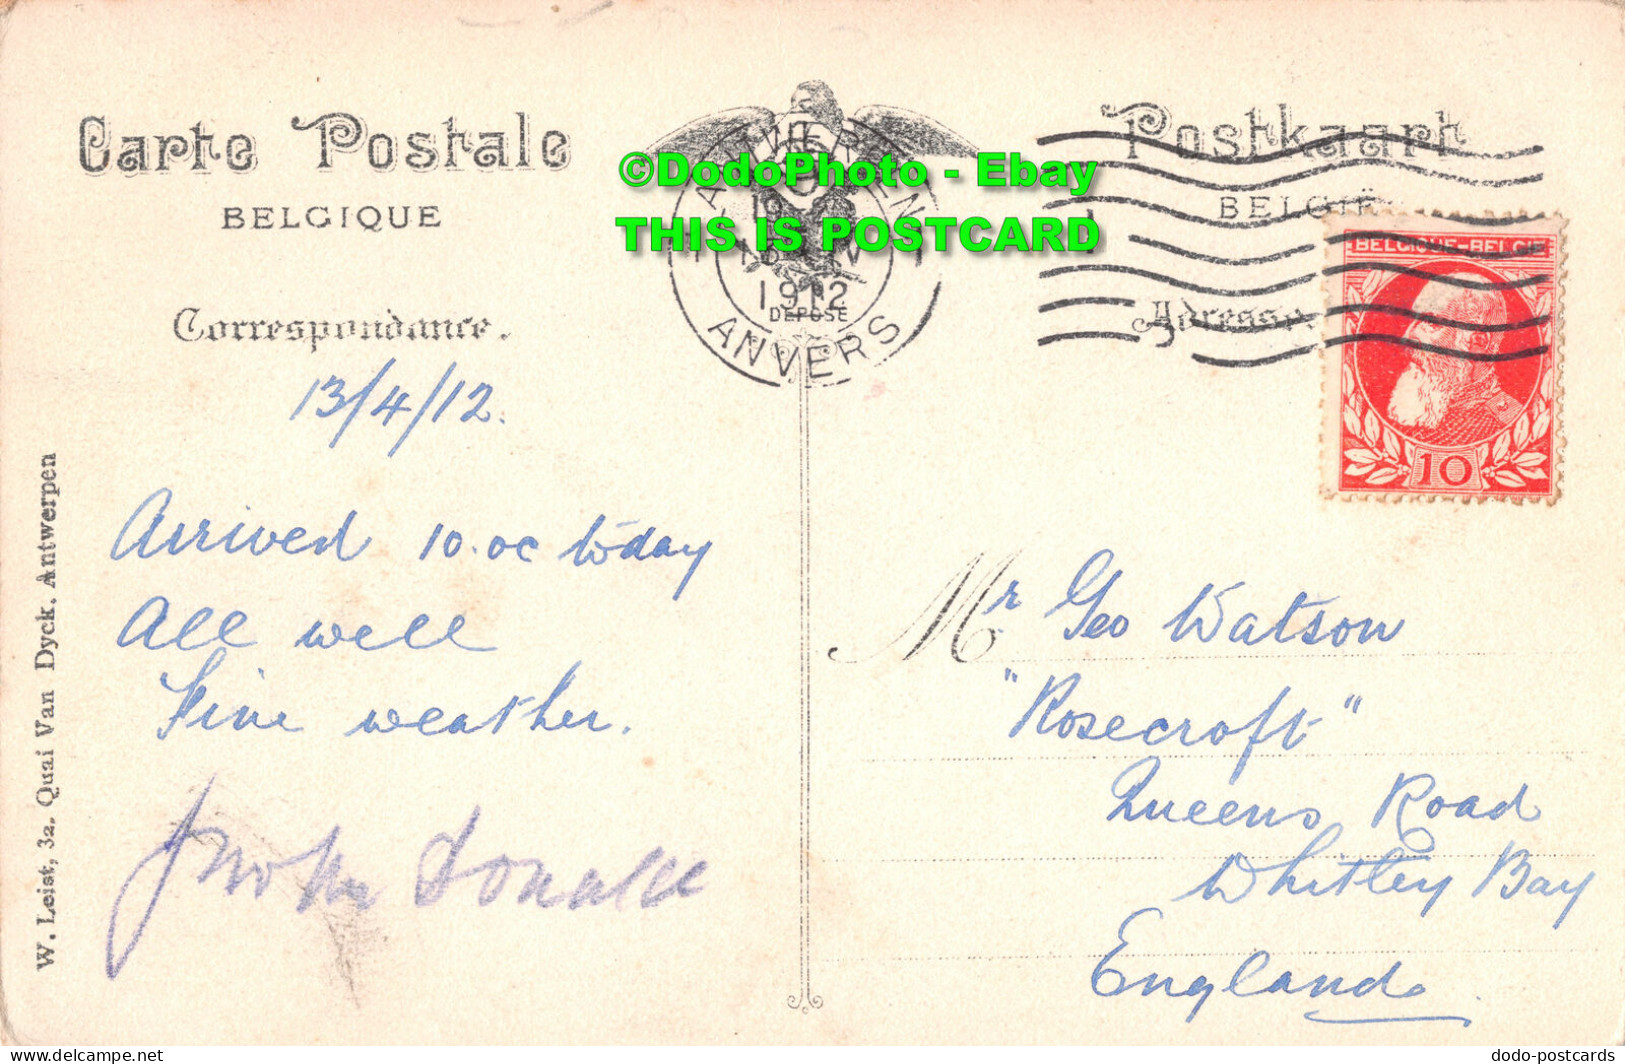 Carte Postale
BELGIQUE
Correspondance.
13/4/12.
Arrived 10.oc to-day
All well
Fine weather.
W. Leist, 32, Quai Van Dyck. Antwerpen
ANTWERPEN
1912
DEPOSE
ANVERS
©DodoPhoto - Ebay
THIS IS POSTCARD
Postkaart
BELGIË
Adresse.
BELGIQUE-BELGIE
10
Mr Geo Watson
"Rosecroft"
Queens Road
Whitley Bay
England
Delcampe.net
dodo-postcards